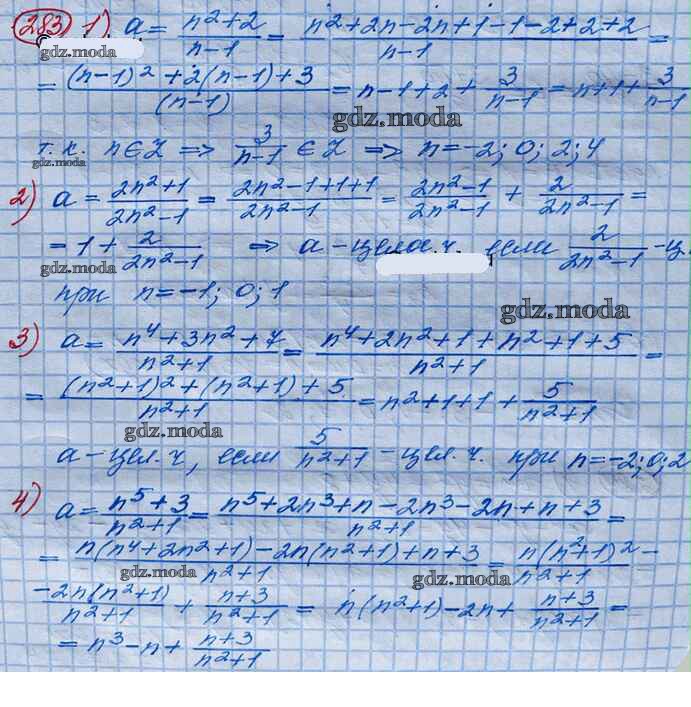 283 1) a = (n²+2)/(n-1) = (n²+2n-2n+1-1-2+2+2)/(n-1) =
gdz.moda
= ((n-1)²+2(n-1)+3)/(n-1) = n-1+2+3/(n-1) = n+1+3/(n-1)
gdz.moda
т.к. n∈Z ⇒ 3/(n-1) ∈ Z ⇒ n=-2; 0; 2; 4
gdz.moda
2) a = (2n²+1)/(2n²-1) = (2n²-1+1+1)/(2n²-1) = (2n²-1)/(2n²-1) + 2/(2n²-1) =
= 1 + 2/(2n²-1) ⇒ a - целое ч. если 2/(2n²-1) - ц.
gdz.moda
при n=-1; 0; 1
gdz.moda
3) a = (n⁴+3n²+7)/(n²+1) = (n⁴+2n²+1+n²+1+5)/(n²+1) =
= ((n²+1)²+(n²+1)+5)/(n²+1) = n²+1+1+5/(n²+1)
gdz.moda
a - цел. ч, если 5/(n²+1) - цел. ч. при n=-2; 0; 2
4) a = (n⁵+3)/(n²+1) = (n⁵+2n³+n-2n³-2n+n+3)/(n²+1) =
= (n(n⁴+2n²+1)-2n(n²+1)+n+3)/(n²+1) = n(n²+1)²/(n²+1) -
gdz.moda
gdz.moda
-2n(n²+1)/(n²+1) + (n+3)/(n²+1) = n(n²+1)-2n+(n+3)/(n²+1) =
= n³-n+(n+3)/(n²+1)